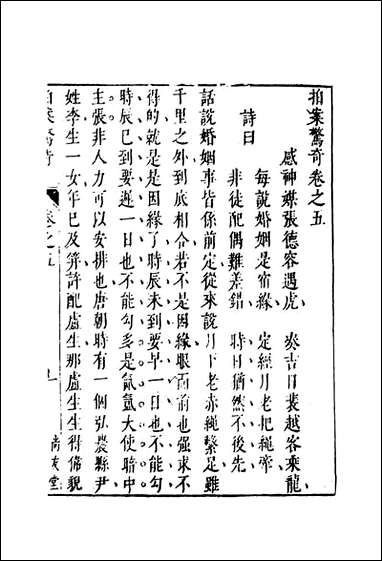 拍案驚奇卷之五
感神媒張德容遇虎 湊吉日裴越客乘龍
詩曰
每說婚姻是宿緣 定經月老把繩牽
非徒配偶難差錯 時日猶然不後先
話說婚姻事皆係前定從來說月下老赤繩繫足雖
千里之外到底相合若不是因緣眼面前也強求不
得的就是是因緣了時辰未到要早一日也不能勾
時辰已到要遲一日也不能勾多是氤氳大使暗中
主張非人力可以安排也唐朝時有一個弘農縣尹
姓李生一女年已及笄許配盧生那盧生生得偉貌
拍案驚奇 卷之五 尚友堂